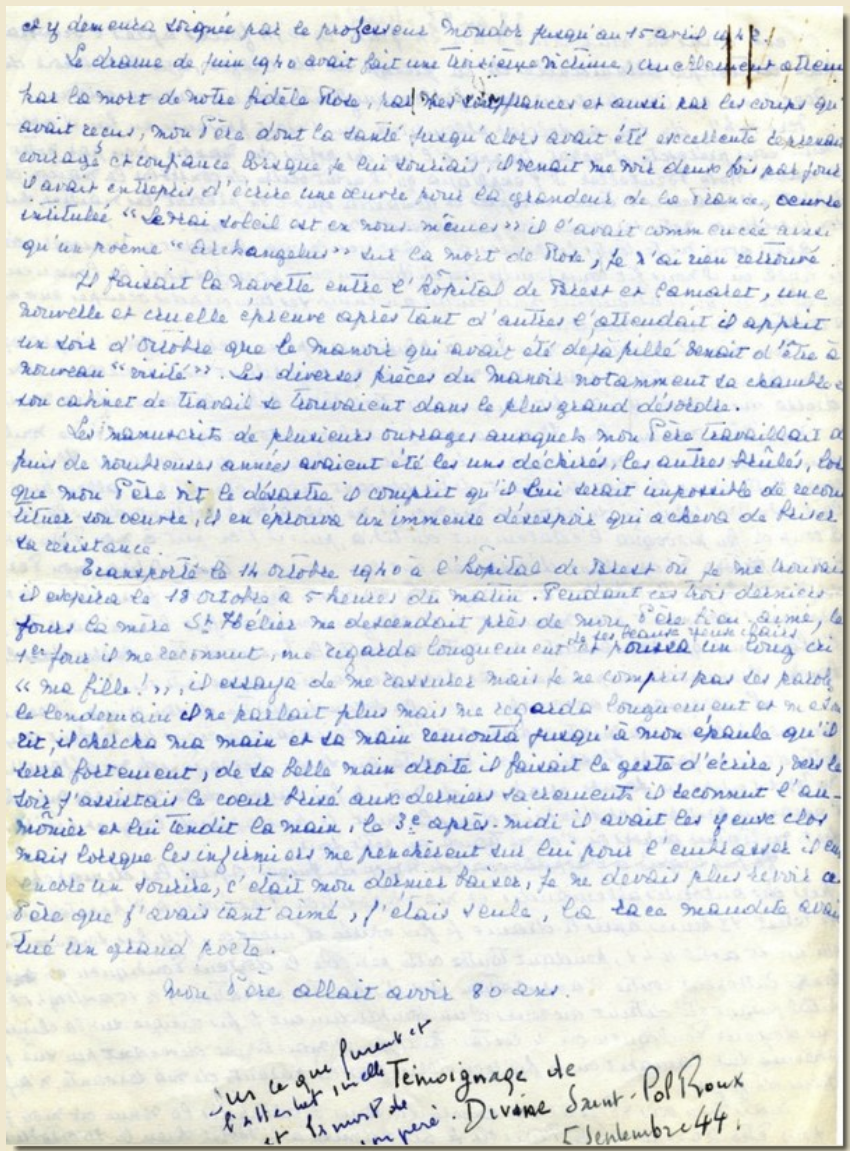 et y demeura soignée par le professeur Mondor jusqu'au 15 avril 1942.
Le drame de juin 1940 avait fait une troisième victime, cruellement attein
par la mort de notre fidèle Rose, par mes souffrances et aussi par les coups qu'
avait reçus, mon Père dont la santé jusqu'alors avait été excellente reprenai
courage et confiance lorsque je lui souriais, il venait me voir deux fois par jour
il avait entrepris d'écrire une œuvre pour la grandeur de la France, oeuvre
intitulée "Le vrai soleil est en nous-mêmes" il l'avait commencée ainsi
qu'un poème "Archangelus" sur la mort de Rose, je n'ai rien retrouvé.
Il faisait la navette entre l'hôpital de Brest et Camaret, une
nouvelle et cruelle épreuve après tant d'autres l'attendait il apprit
un soir d'octobre que le manoir qui avait été déjà pillé venait d'être à
nouveau "visité". Les diverses pièces du Manoir notamment sa chambre e
son cabinet de travail se trouvaient dans le plus grand désordre.
Les manuscrits de plusieurs ouvrages auxquels mon Père travaillait d
puis de nombreuses années avaient été les uns déchirés, les autres brûlés, lors
que mon Père vit le désastre il comprit qu'il lui serait impossible de recon
tituer son oeuvre, il en éprouva un immense désespoir qui acheva de briser
sa résistance.
Transporté le 14 octobre 1940 à l'hôpital de Brest où je me trouvai
il expira le 18 octobre à 5 heures du matin. Pendant ces trois derniers
jours la mère St Hélier me descendait près de mon Père bien-aimé, le
1er jour il me reconnut, me regarda longuement de ses beaux yeux clairs et poussa un long cri
"ma fille!", il essaya de me rassurer mais je ne compris pas ses parol
le lendemain il ne parlait plus mais me regarda longuement et me sou
rit, il chercha ma main et sa main remonta jusqu'à mon épaule qu'il
serra fortement, de sa belle main droite il faisait le geste d'écrire, vers le
soir j'assistais le coeur brisé aux derniers sacrements il reconnut l'au-
mônier et lui tendit la main, le 3e après-midi il avait les yeux clos
mais lorsque les infirmiers me penchèrent sur lui pour l'embrasser il eu
encore un sourire, c'était mon dernier baiser, je ne devais plus revoir ce
Père que j'avais tant aimé, j'étais seule, la race maudite avai
tué un grand poète.
Mon Père allait avoir 80 ans.
sur ce que furent et
l'attentat
et la mort de
mon père. Témoignage de
Divine Saint-Pol Roux
5 Septembre 44.